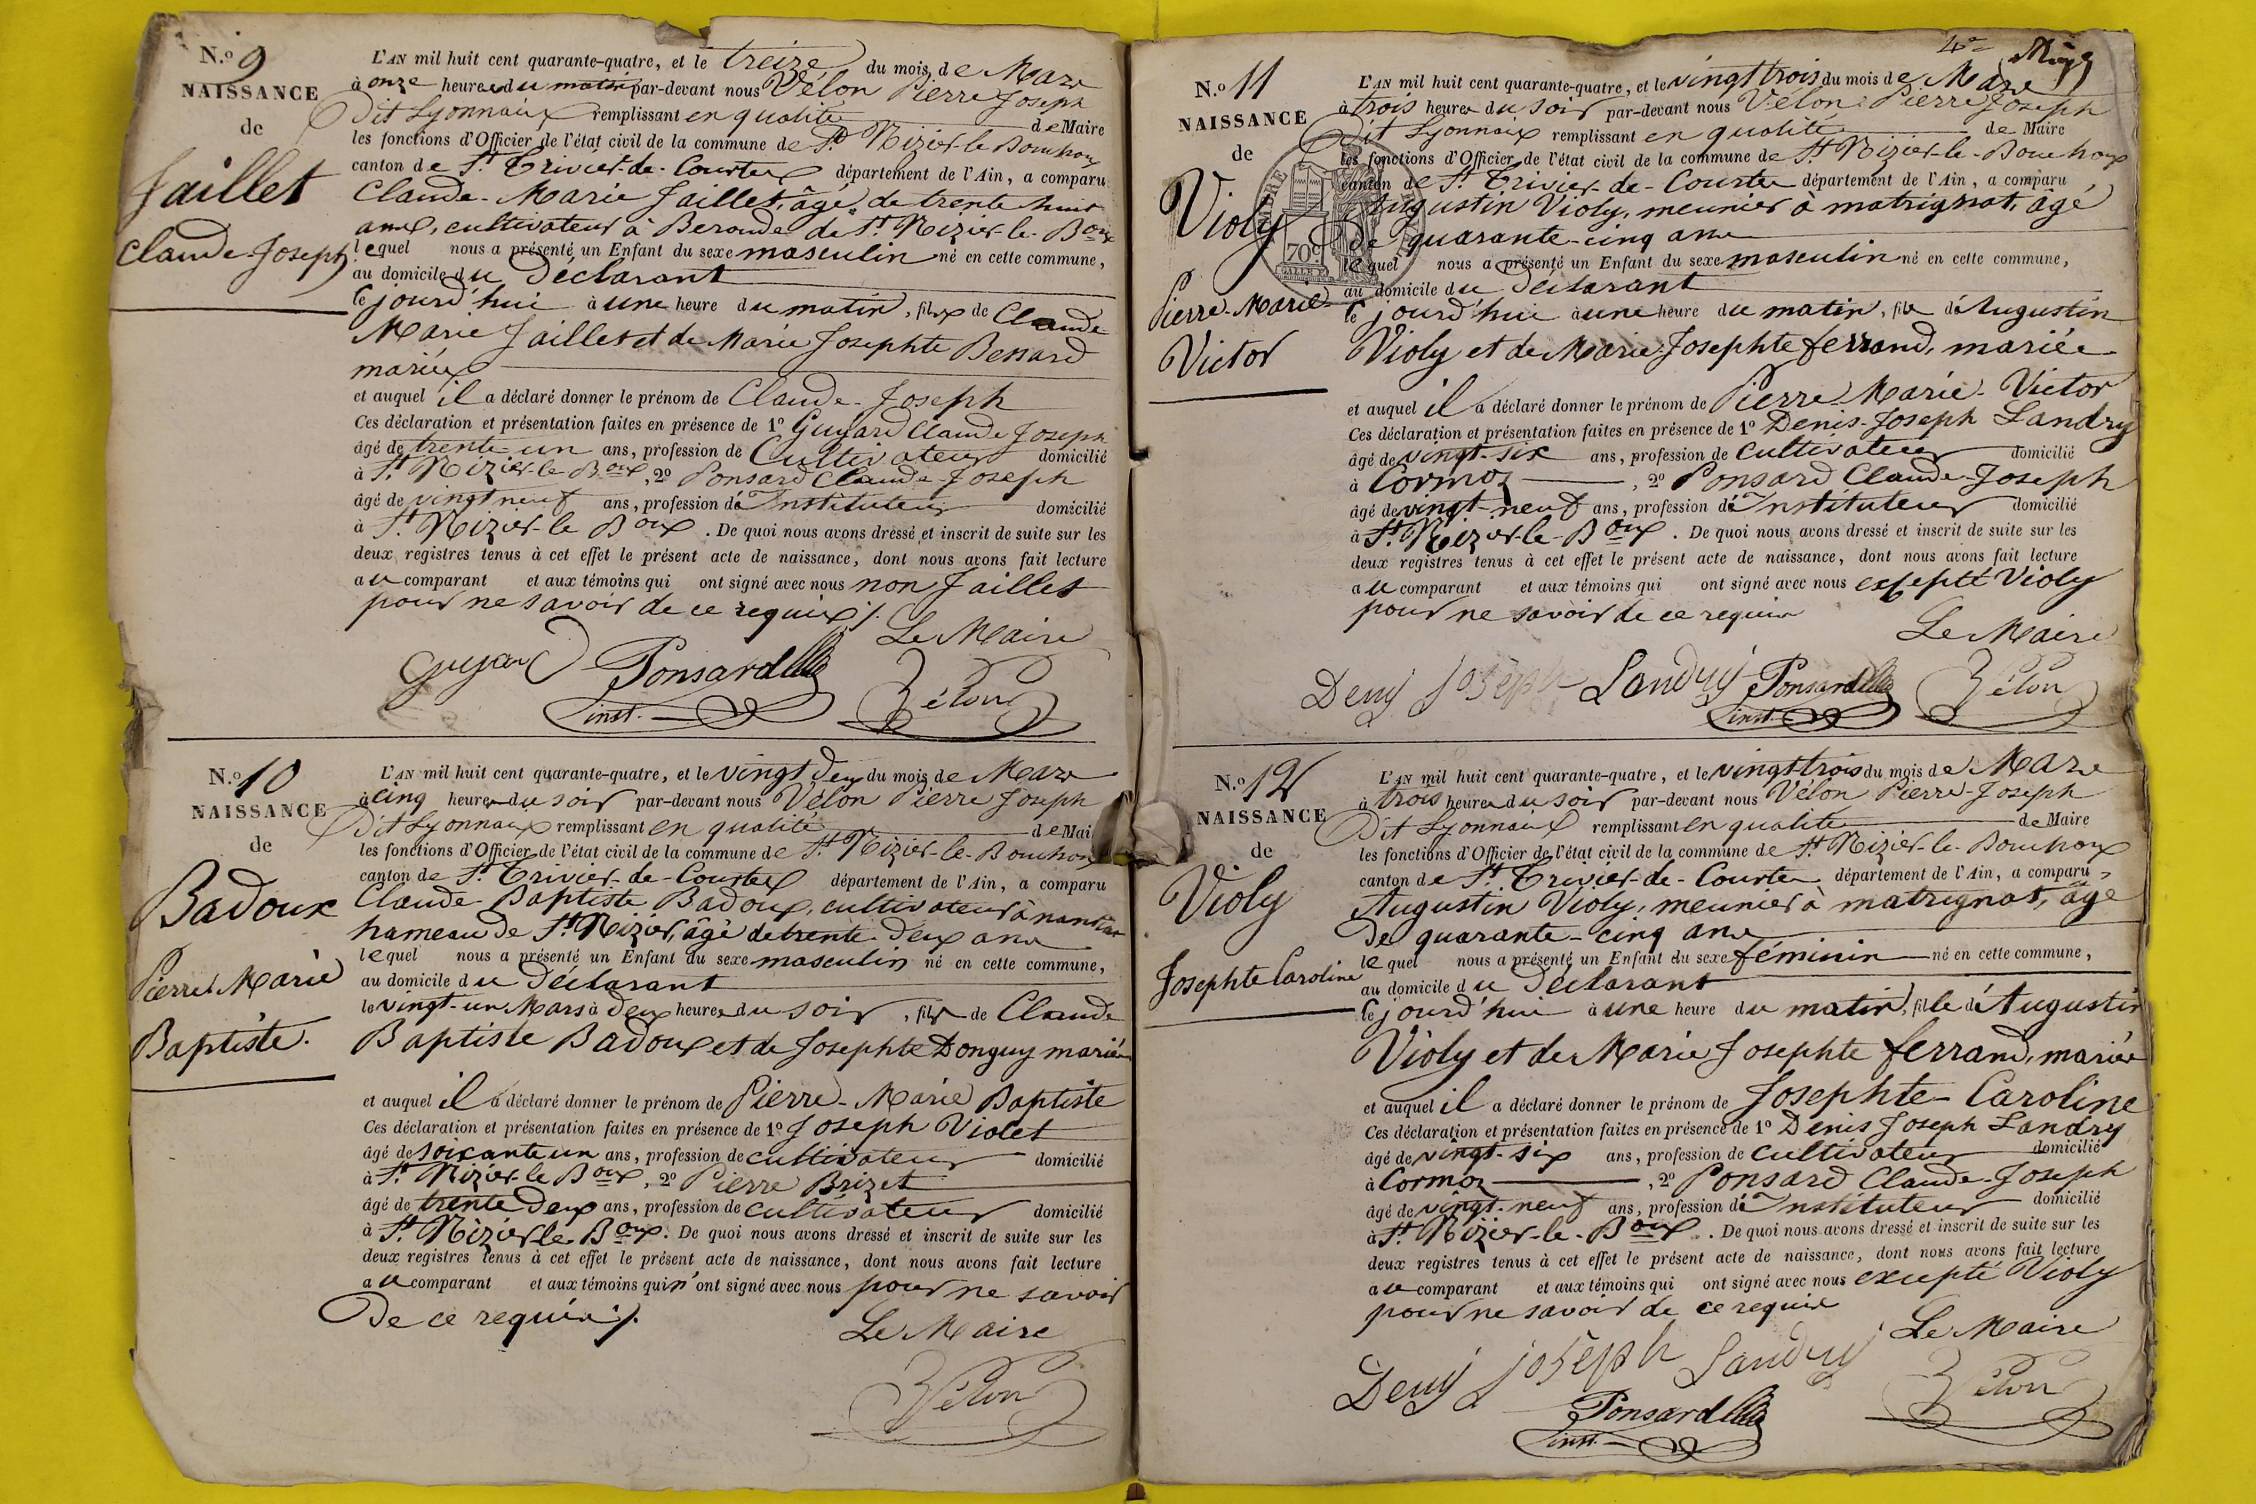 N.o 9
NAISSANCE
de
Jaillet
Claude-Joseph
L'AN mil huit cent quarante-quatre, et le treize du mois de Mars
à onze heures du matin par-devant nous Vélon Pierre Joseph
dit Lyonnais remplissant en qualité de Maire
les fonctions d'Officier de l'état civil de la commune de St. Nizier-le-Bouchoux
canton de St. Trivier-de-Courtes département de l'Ain, a comparu
Claude-Marie Jaillet, âgé de trente huit
ans, cultivateur à Beroude de St. Nizier-le-Boux
lequel nous a présenté un Enfant du sexe masculin né en cette commune,
au domicile du Déclarant
le jourd'hui à une heure du matin, fils de Claude
Marie Jaillet et de Marie Josephte Benard
mariés
et auquel il a déclaré donner le prénom de Claude-Joseph
Ces déclaration et présentation faites en présence de 1º Guyard Claude Joseph
âgé de trente-un ans, profession de Cultivateur domicilié
à St. Nizier-le-Boux, 2º Ponsard Claude-Joseph
âgé de vingt neuf ans, profession d'Instituteur domicilié
à St. Nizier-le Boux. De quoi nous avons dressé et inscrit de suite sur les
deux registres tenus à cet effet le présent acte de naissance, dont nous avons fait lecture
au comparant et aux témoins qui ont signé avec nous non Jaillet
pour ne savoir de ce requis /.
Le Maire
Guyard Ponsard Vélon
inst.
N.o 10
NAISSANCE
de
Badoux
Pierre Marie
Baptiste.
L'AN mil huit cent quarante-quatre, et le vingt deux du mois de Mars
à cinq heures du soir par-devant nous Vélon Pierre Joseph
dit Lyonnais remplissant en qualité de Mai
les fonctions d'Officier de l'état civil de la commune de St. Nizier-le-Bouchoux
canton de St. Trivier-de-Courtes département de l'Ain, a comparu
Claude-Baptiste Badoux, cultivateur à
hameau de St. Nizier, âgé de trente deux ans
lequel nous a présenté un Enfant du sexe masculin né en cette commune,
au domicile du Déclarant
le vingt-un Mars à deux heures du soir, fils de Claude
Baptiste Badoux et de Josephte Donguy mariés
et auquel il a déclaré donner le prénom de Pierre-Marie Baptiste
Ces déclaration et présentation faites en présence de 1º Joseph Violet
âgé de soixante un ans, profession de cultivateur domicilié
à St. Nizier-le Boux, 2º Pierre Brizet
âgé de trente deux ans, profession de cultivateur domicilié
à St. Nizier le Boux. De quoi nous avons dressé et inscrit de suite sur les
deux registres tenus à cet effet le présent acte de naissance, dont nous avons fait lecture
au comparant et aux témoins qui n'ont signé avec nous pour ne savoir
de ce requis /.
Le Maire
Vélon
4e
N.o 11
NAISSANCE
de
Violy
Pierre-Marie-
Victor
70c
L'AN mil huit cent quarante-quatre, et le vingt trois du mois de Mars
à trois heures du soir par-devant nous Vélon Pierre Joseph
dit Lyonnais remplissant en qualité de Maire
les fonctions d'Officier de l'état civil de la commune de St. Nizier-le-Bouchoux
canton de St. Trivier-de-Courtes département de l'Ain, a comparu
Augustin Violy, meunier à matrignat, âgé
de quarante-cinq ans
lequel nous a présenté un Enfant du sexe masculin né en cette commune,
au domicile du Déclarant
le jourd'hui à une heure du matin, fils d'Augustin
Violy et de Marie-Josephte ferrand, mariés
et auquel il a déclaré donner le prénom de Pierre Marie-Victor
Ces déclaration et présentation faites en présence de 1º Denis-Joseph Landry
âgé de vingt-six ans, profession de cultivateur domicilié
à Cormoz, 2º Ponsard Claude-Joseph
âgé de vingt-neuf ans, profession d'Instituteur domicilié
à St. Nizier-le-Boux. De quoi nous avons dressé et inscrit de suite sur les
deux registres tenus à cet effet le présent acte de naissance, dont nous avons fait lecture
au comparant et aux témoins qui ont signé avec nous excepté Violy
pour ne savoir de ce requis
Le Maire
Deny joseph Landry Ponsard Vélon
inst.
N.o 12
NAISSANCE
de
Violy
Josephte Caroline
L'AN mil huit cent quarante-quatre, et le vingt trois du mois de Mars
à trois heures du soir par-devant nous Vélon Pierre-Joseph
dit Lyonnais remplissant en qualité de Maire
les fonctions d'Officier de l'état civil de la commune de St. Nizier-le-Bouchoux
canton de St. Trivier-de-Courtes département de l'Ain, a comparu
Augustin Violy, meunier à matrignat, âgé
de quarante-cinq ans
lequel nous a présenté un Enfant du sexe féminin né en cette commune,
au domicile du Déclarant
le jourd'hui à une heure du matin, fille d'Augustin
Violy et de Marie Josephte ferrand, mariés
et auquel il a déclaré donner le prénom de Josephte-Caroline
Ces déclaration et présentation faites en présence de 1º Denis Joseph Landry
âgé de vingt-six ans, profession de cultivateur domicilié
à Cormoz, 2º Ponsard Claude-Joseph
âgé de vingt-neuf ans, profession d'Instituteur domicilié
à St. Nizier-le-Boux. De quoi nous avons dressé et inscrit de suite sur les
deux registres tenus à cet effet le présent acte de naissance, dont nous avons fait lecture
au comparant et aux témoins qui ont signé avec nous excepté Violy
pour ne savoir de ce requis
Le Maire
Deny joseph Landry Vélon
Ponsard
inst.